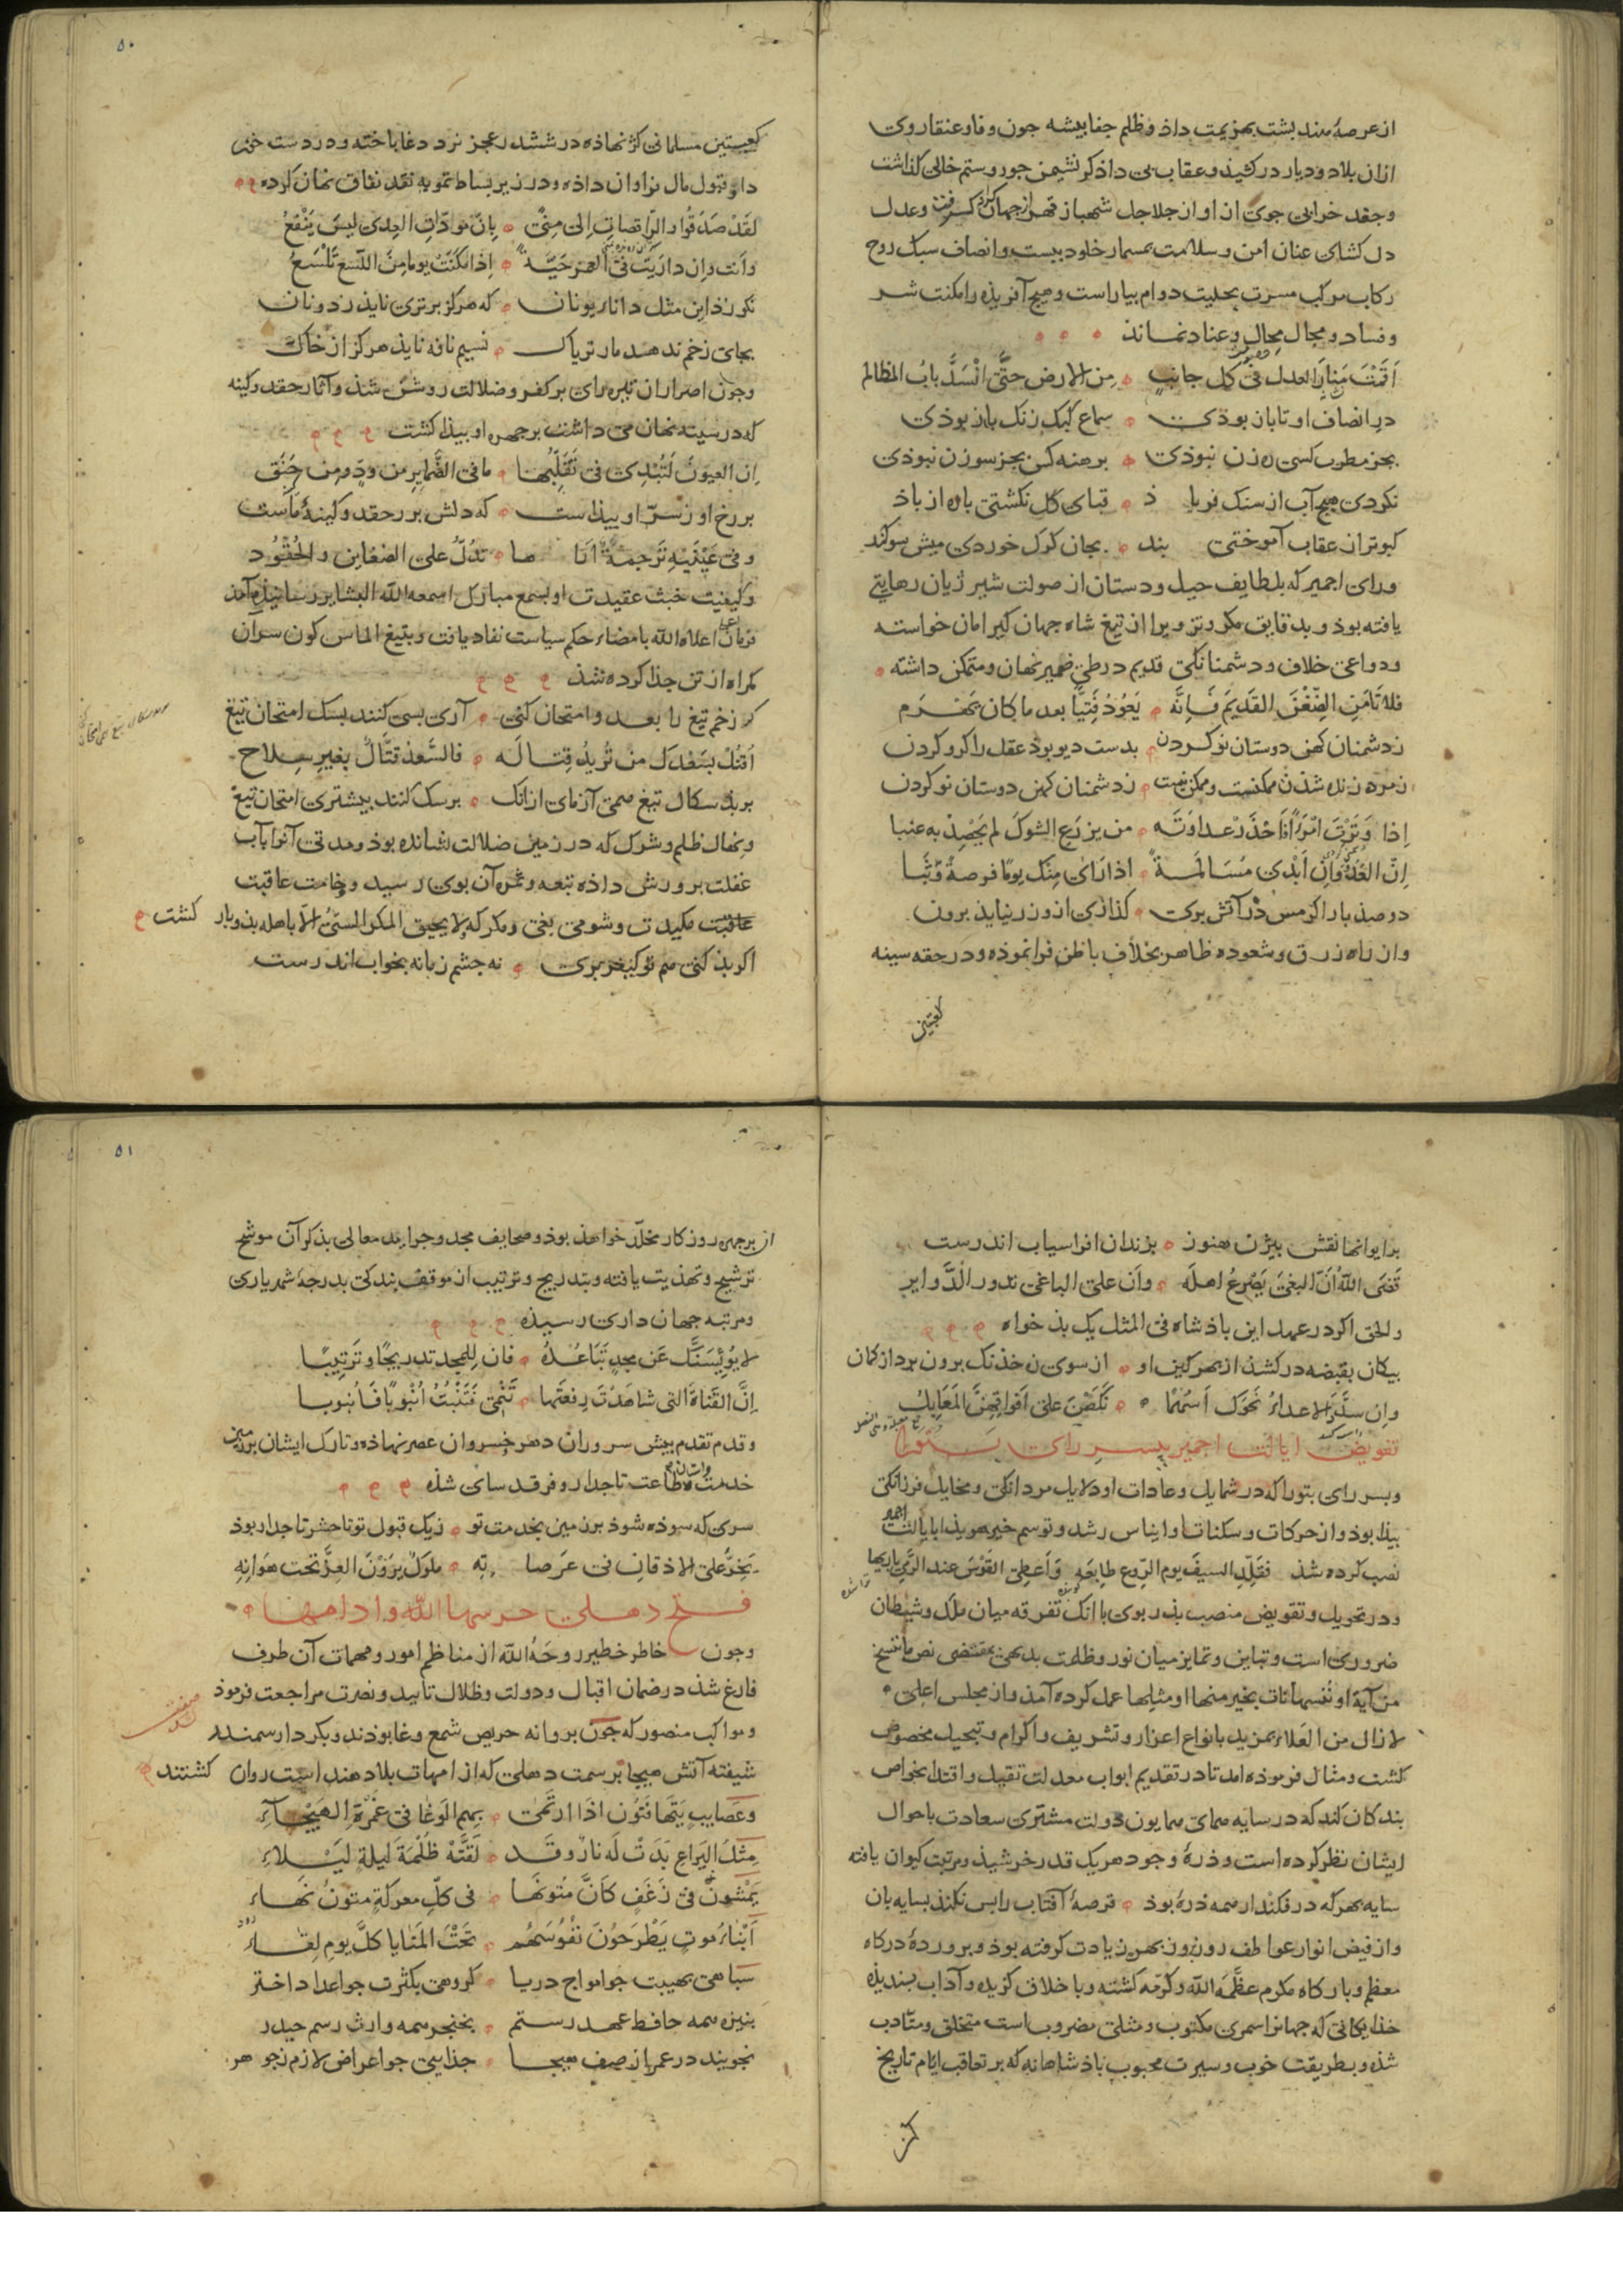 از عرصهٔ هند بشت بهزیمت داذ و ظلم جفا بیشه جون وفا و عنقا روی
ازان بلاد و دیار در کشید و عقاب بی داذ کر نشیمن جور و ستم خالی کذاشت
و جغد خرابی جوی از او از جلاجل شهباز قهر از جهان کرانه کرفت و عدل
دل کشای عنان امن و سلامت بمسمار خلود ببست و انصاف سبک روح
رکاب مرکب مسرت بحلیت دوام بیاراست و هیج آفریذه را مکنت شر
و فساد و مجال محال و عناد نماند
اَقَمْتَ مَنارَ العدل فی کل جانبٍ مِن الارض حتَّی انْسَدَّ بابُ المظالم
در انصاف او تابان بوذی سماع کبک زنک باز بوذی
بجز مطرب کسی ره زن نبوذی برهنه کس بجز سوزن نبوذی
نکردی هیج آب از سنک فریاذ قبای کل نکشتی باره از باذ
کبوتر از عقاب آموختی بند بجان کرک خوردی میش سوکند
و رای اجمیر که بلطایف حیل و دستان از صولت شیر ژیان رهایی
یافته بوذ و بدقایق مکر و تزویر از تیغ شاه جهان کیر امان خواسته
و دواعی خلاف و دشمنانکی قدیم در طی ضمیر نهان و متمکن داشته
فلا تَأمَنِ الضِّغْنَ القَدیَم فَاِنَّه یَعُوْدُ فَتِیًّا بعد ما کان یَهْرَم
ز دشمنان کهن دوستان نو کردن بدست دیو بوذ عقل را کرو کردن
ز مرده زنده شذن ممکنست و ممکن نیست ز دشمنان کهن دوستان نو کردن
اِذا وَتَرْتَ امْرَءًا فَاحْذَرْ عداوتَه من یزرع الشوکَ لم یَحْصِدْ به عنبا
اِنّ العَدُوَّ وَاِن اَبْدی مُسَالَمَةً اذا رَای مِنْک یومًا فرصةً وَثَبا
در صذ بار اکر مس در آتش بری کذازی ازو زر نیایذ برون
و از راه زرق و شعوده ظاهر بخلاف باطن فرا نموذه و در حقه سینه
کعبتین
۵۰
کعبتین مسلمانی کژ نهاذه در ششدر عجز نرد دغا باخته و در دست خون
داو قبول مال فراوان داذه و در زیر بساط تمویه نقد نفاق نهان کرده
لقَدْ صَدَقُوا و الرّاقصاتِ اِلی مِنًی بِانّ مَودّاتِ العِدی لیسَ یَنْفَعُ
و اَنت و اِن دارَیتَ فی العمر حَیَّةً اذا مَکَّنَتْ یوما مِنَ اللّسْعِ تَلْسَعُ
نکو زذ این مثل دانای یونان که هرکز برتری نایذ ز دونان
بجای زخم ندهد مار تریاک نسیم نافه نایذ هرکز از خاک
و جون اصرار ان تیره رای بر کفر و ضلالت روشن شذ و آثار حقد و کینه
که در سینه نهان می داشت بر جهره او بیذا کشت
اِن العیونَ لَتُبْدی فی تَقَلُّبِها ما فی الضَّمایِرِ من ودٍّ ومِن حَنَقِ
بر رخ او ز سرّ او بیذاست که دلش بر ز حقد و کینهٔ ماست
و فی عَیْنَیْهِ تَرجمةٌ اَراها تدُلُّ علی الضغاین و الحُقُوْد
و کیفیت خبث عقیدت او بسمع مبارک اسمعه الله البشایر رسانیذه آمذ
فرمان اعلاه الله بامضاء حکم سیاست نفاد یافت و بتیغ الماس کون سر ان
کمراه از تن جذا کرده شذ
کر زخم تیغ را بعدو امتحان کنی آری بسی کنند بسک امتحان تیغ
اُقتُلْ بسَعْدِک من تُریدُ قِتالَه فالسَّعدُ قتَّالٌ بغیرِ سِلاح
بر بذ سکال تیغ همی آزمای ازانک بر سک کنند بیشتری امتحان تیغ
و نهال ظلم و شرک که در زمین ضلالت نشانده بوذ و مدتی آنرا بآب
غفلت برورش داذه تبعه و ثمره آن بوی رسید و خامت عاقبت
عاقبت مکیدت و شومی بغی و مکر که لا یحیق المکر السیّئُ الّا باهله بذو باز کشت
اکر بذ کنی هم تو کیفر بری نه جشم زمانه بخواب اندرست
بر ایوانها نقش بیژن هنوز بزندان افراسیاب اندرست
قَضَی اللهُ اَنّ البغیَ یَصْرعُ اهلَه و اَن علی الباغی تدور الدَّوایر
و الحق اکر در عهد این باذشاه فی المثل یک بذ خواه
بیکان بقبضه در کشذ از بهر کین او از سوی ن خذنک برون برد از کمان
و اِن سدَّدَ الاعداءُ نَحْوَک اَسْهُمًا نَکَصْنَ علی اَفْواقِهنَّ المَعَابِلُ
تفویض ایالت اجمیر ببسر رای بتورا
و بسر رای بتورا که در شمایل و عادات او دلایل مردانکی و مخایل فرزانکی
بیذا بوذ و از حرکات و سکنات او ایناس رشد و توسم خیر هویذا بایالت اجمیر
نصب کرده شذ فقَلِّدِ السیفَ یوم الرّوع طابِعَه وَ اَعطِی القَوْسَ عند الرَّمی باریها
و در تحویل و تفویض منصب بذر بوی با انک تفرقه میان ملک و شیطان
ضروری است و تباین و تمایز میان نور و ظلمت بدیهی بمقتضی نص ما ننسخ
من آیة او ننسها نات بخیر منها او مثلها عمل کرده آمذ و از مجلس اعلی
لا زال من العَلاء بمزید بانواع اعزاز و تشریف و اکرام و تبجیل مخصوص
کشت و مثال فرموذه امد تا در تقدیم ابواب معدلت تقیل و اقتدا بخواص
بندکان کند که در سایه همای همایون دولت مشتری سعادت باحوال
ایشان نظر کرده است و ذرهٔ وجود هر یک قدر خرشیذ و مرتبت کیوان یافته
سایه بهر که در فکند ار همه ذره بوذ قرصهٔ آفتاب را بس نکند بسایه بان
و از فیض انوار عواطف روز بروز بهره زیادت کرفته بوذ و بروردهٔ درکاه
معظم و بارکاه مکرم عظّمه الله و کرّمه کشته و با خلاق کزیده و آداب بسندیذه
خذایکانی که جهانرا سمری مکتوب و مثلی مضروب است متخلق و متأدب
شذه و بطریقت خوب و سیرت محبوب باذشاهانه که بر تعاقب ایام تاریخ
۵۱
از بر جهره روزکار مخلّد خواهذ بوذ و صحایف مجد و جراید معالی بذکر آن موشح
ترشیح و تهذیب یافته و بتدریج و ترتیب از موقف بندکی بدرجهٔ شهریاری
و مرتبه جهان داری رسیذه
لا یوُئیِسَنَّک عَن مجدٍ تَبَاعُدُهُ فان لِلمَجد تدریجًا و تَرتِیبًا
اِنَّ القَناةَ التی شاهَدْتَ رِفعَتَها تَنْمِی فَتَنْبُتُ اُنْبُوبًا فَاُنبوبا
و قدم تقدم بیش سروران دهر و خسروان عصر نهاذه و تارک ایشان بر زمین
خدمت و طاعت تاجدار و فرقد سای شذه
سری که سوذه شوذ بر زمین بخدمت تو ز یک قبول تو تا حشر تاجدار بوذ
یَخِرُّ علی الاذقانِ فی عَرَصاتِه ملوکٌ یرَوْنَ العِزَّ تحت هَوَانِهِ
فتح دهلی حرسها الله و ادامها
و جون خاطر خطیر روحَهُ الله از مناظم امور و مهمات آن طرف
فارغ شذ در ضمان اقبال و دولت و ظلال تایید و نصرت مراجعت فرموذ
و مواکب منصور که جون بروانه حریص شمع وغا بوذند و بکردار سمندر
شیفته آتش هیجا بر سمت دهلی که از امهات بلاد هند است روان کشتند
و عَصَایِبٍ یَتَهافَتُونَ اذا ارتَمَی بِهِم الوَغا فی غَمْرةِ الهَیْجَاءِ
مِثلَ الیَراعِ بَدَتْ لَه نارٌ وَقَد لَفَّتْهُ ظُلْمَةُ لیلةٍ لیْلاءِ
یَمْشُونَ فی زَغَفٍ کاَنّ مُتُونَها فی کلّ معرکةٍ متونُ نهاء
اَبْناءُ موتٍ یَطْرَحُونَ نفُوسَهُم تحَتَ المَنایا کلَّ یومِ لِقاءٍ
سباهی بهیبت جو امواج دریا کروهی بکثرت جو اعداد اختر
بنیزه همه حافظ عهد رستم بخنجر همه وارث رسم حیدر
نجویند در عمر از صف هیجا جذایی جو اعراض لازم ز جوهر